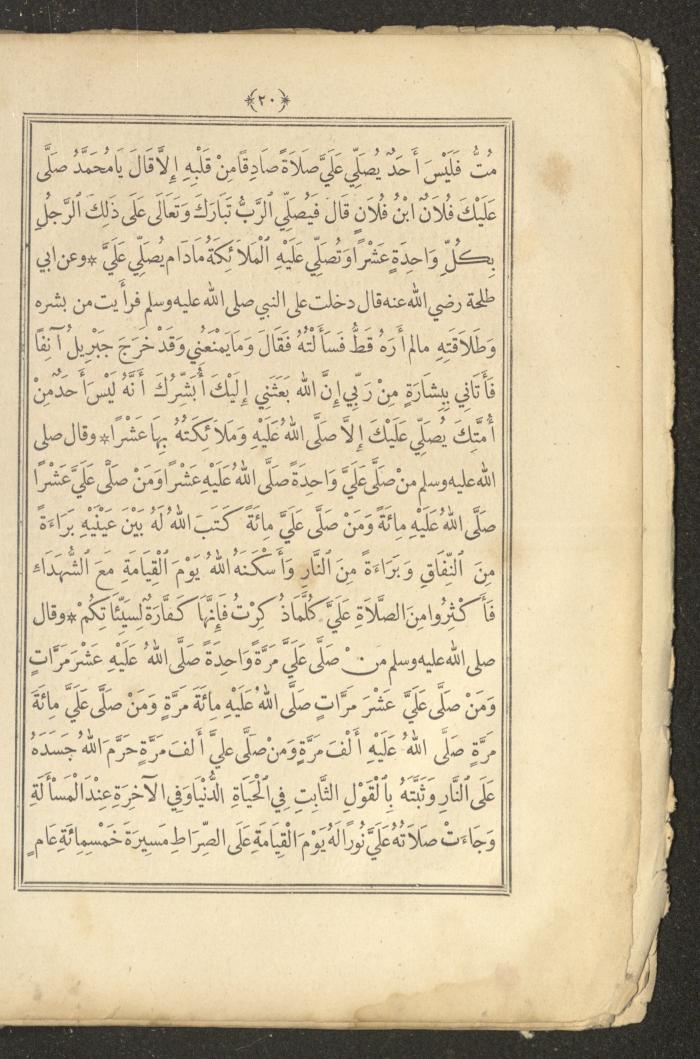 ﴿٢٠﴾
مُتُّ فَلَيْسَ أَحَدٌ يُصَلِّي عَلَيَّ صَلَاةً صَادِقًا مِنْ قَلْبِهِ إِلَّا قَالَ يَا مُحَمَّدُ صَلَّى
عَلَيْكَ فُلَانٌ ابْنُ فُلَانٍ قَالَ فَيُصَلِّي الرَّبُّ تَبَارَكَ وَتَعَالَى عَلَى ذَلِكَ الرَّجُلِ
بِكُلِّ وَاحِدَةٍ عَشْرًا وَتُصَلِّي عَلَيْهِ الْمَلَائِكَةُ مَادَامَ يُصَلِّي عَلَيَّ * وعن ابي
طلحة رضي الله عنه قال دخلت على النبي صلى الله عليه وسلم فرأيت من بشره
وَطَلَاقَتِهِ مالم أَرَهُ قَطُّ فَسَأَلْتُهُ فَقَالَ وَمَا يَمْنَعُنِي وَقَدْ خَرَجَ جَبْرِيلُ آنِفًا
فَأَتَانِي بِبِشَارَةٍ مِنْ رَبِّي إِنَّ اللهَ بَعَثَنِي إِلَيْكَ أُبَشِّرُكَ أَنَّهُ لَيْسَ أَحَدٌ مِنْ
أُمَّتِكَ يُصَلِّي عَلَيْكَ إِلَّا صَلَّى اللهُ عَلَيْهِ وَمَلَائِكَتُهُ بِهَا عَشْرًا * وقال صلى
الله عليه وسلم مَنْ صَلَّى عَلَيَّ وَاحِدَةً صَلَّى اللهُ عَلَيْهِ عَشْرًا وَمَنْ صَلَّى عَلَيَّ عَشْرًا
صَلَّى اللهُ عَلَيْهِ مِائَةً وَمَنْ صَلَّى عَلَيَّ مِائَةً كَتَبَ اللهُ لَهُ بَيْنَ عَيْنَيْهِ بَرَاءَةً
مِنَ النِّفَاقِ وَبَرَاءَةً مِنَ النَّارِ وَأَسْكَنَهُ اللهُ يَوْمَ الْقِيَامَةِ مَعَ الشُّهَدَاءِ
فَأَكْثِرُوا مِنَ الصَّلَاةِ عَلَيَّ كُلَّمَا ذُكِرْتُ فَإِنَّهَا كَفَّارَةٌ لِسَيِّئَاتِكُمْ * وقال
صلى الله عليه وسلم مَنْ صَلَّى عَلَيَّ مَرَّةً وَاحِدَةً صَلَّى اللهُ عَلَيْهِ عَشْرَ مَرَّاتٍ
وَمَنْ صَلَّى عَلَيَّ عَشْرَ مَرَّاتٍ صَلَّى اللهُ عَلَيْهِ مِائَةَ مَرَّةٍ وَمَنْ صَلَّى عَلَيَّ مِائَةَ
مَرَّةٍ صَلَّى اللهُ عَلَيْهِ أَلْفَ مَرَّةٍ وَمَنْ صَلَّى عليَّ أَلفَ مَرَّةٍ حَرَّمَ اللهُ جَسَدَهُ
عَلَى النَّارِ وَثَبَّتَهُ بِالْقَوْلِ الثَّابِتِ فِي الْحَيَاةِ الدُّنْيَا وَفِي الْآخِرَةِ عِنْدَ الْمَسْأَلَةِ
وَجَاءَتْ صَلَاتُهُ عَلَيَّ نُورًا لَهُ يَوْمَ الْقِيَامَةِ عَلَى الصِّرَاطِ مَسِيرَةَ خَمْسِمِائَةِ عَامٍ